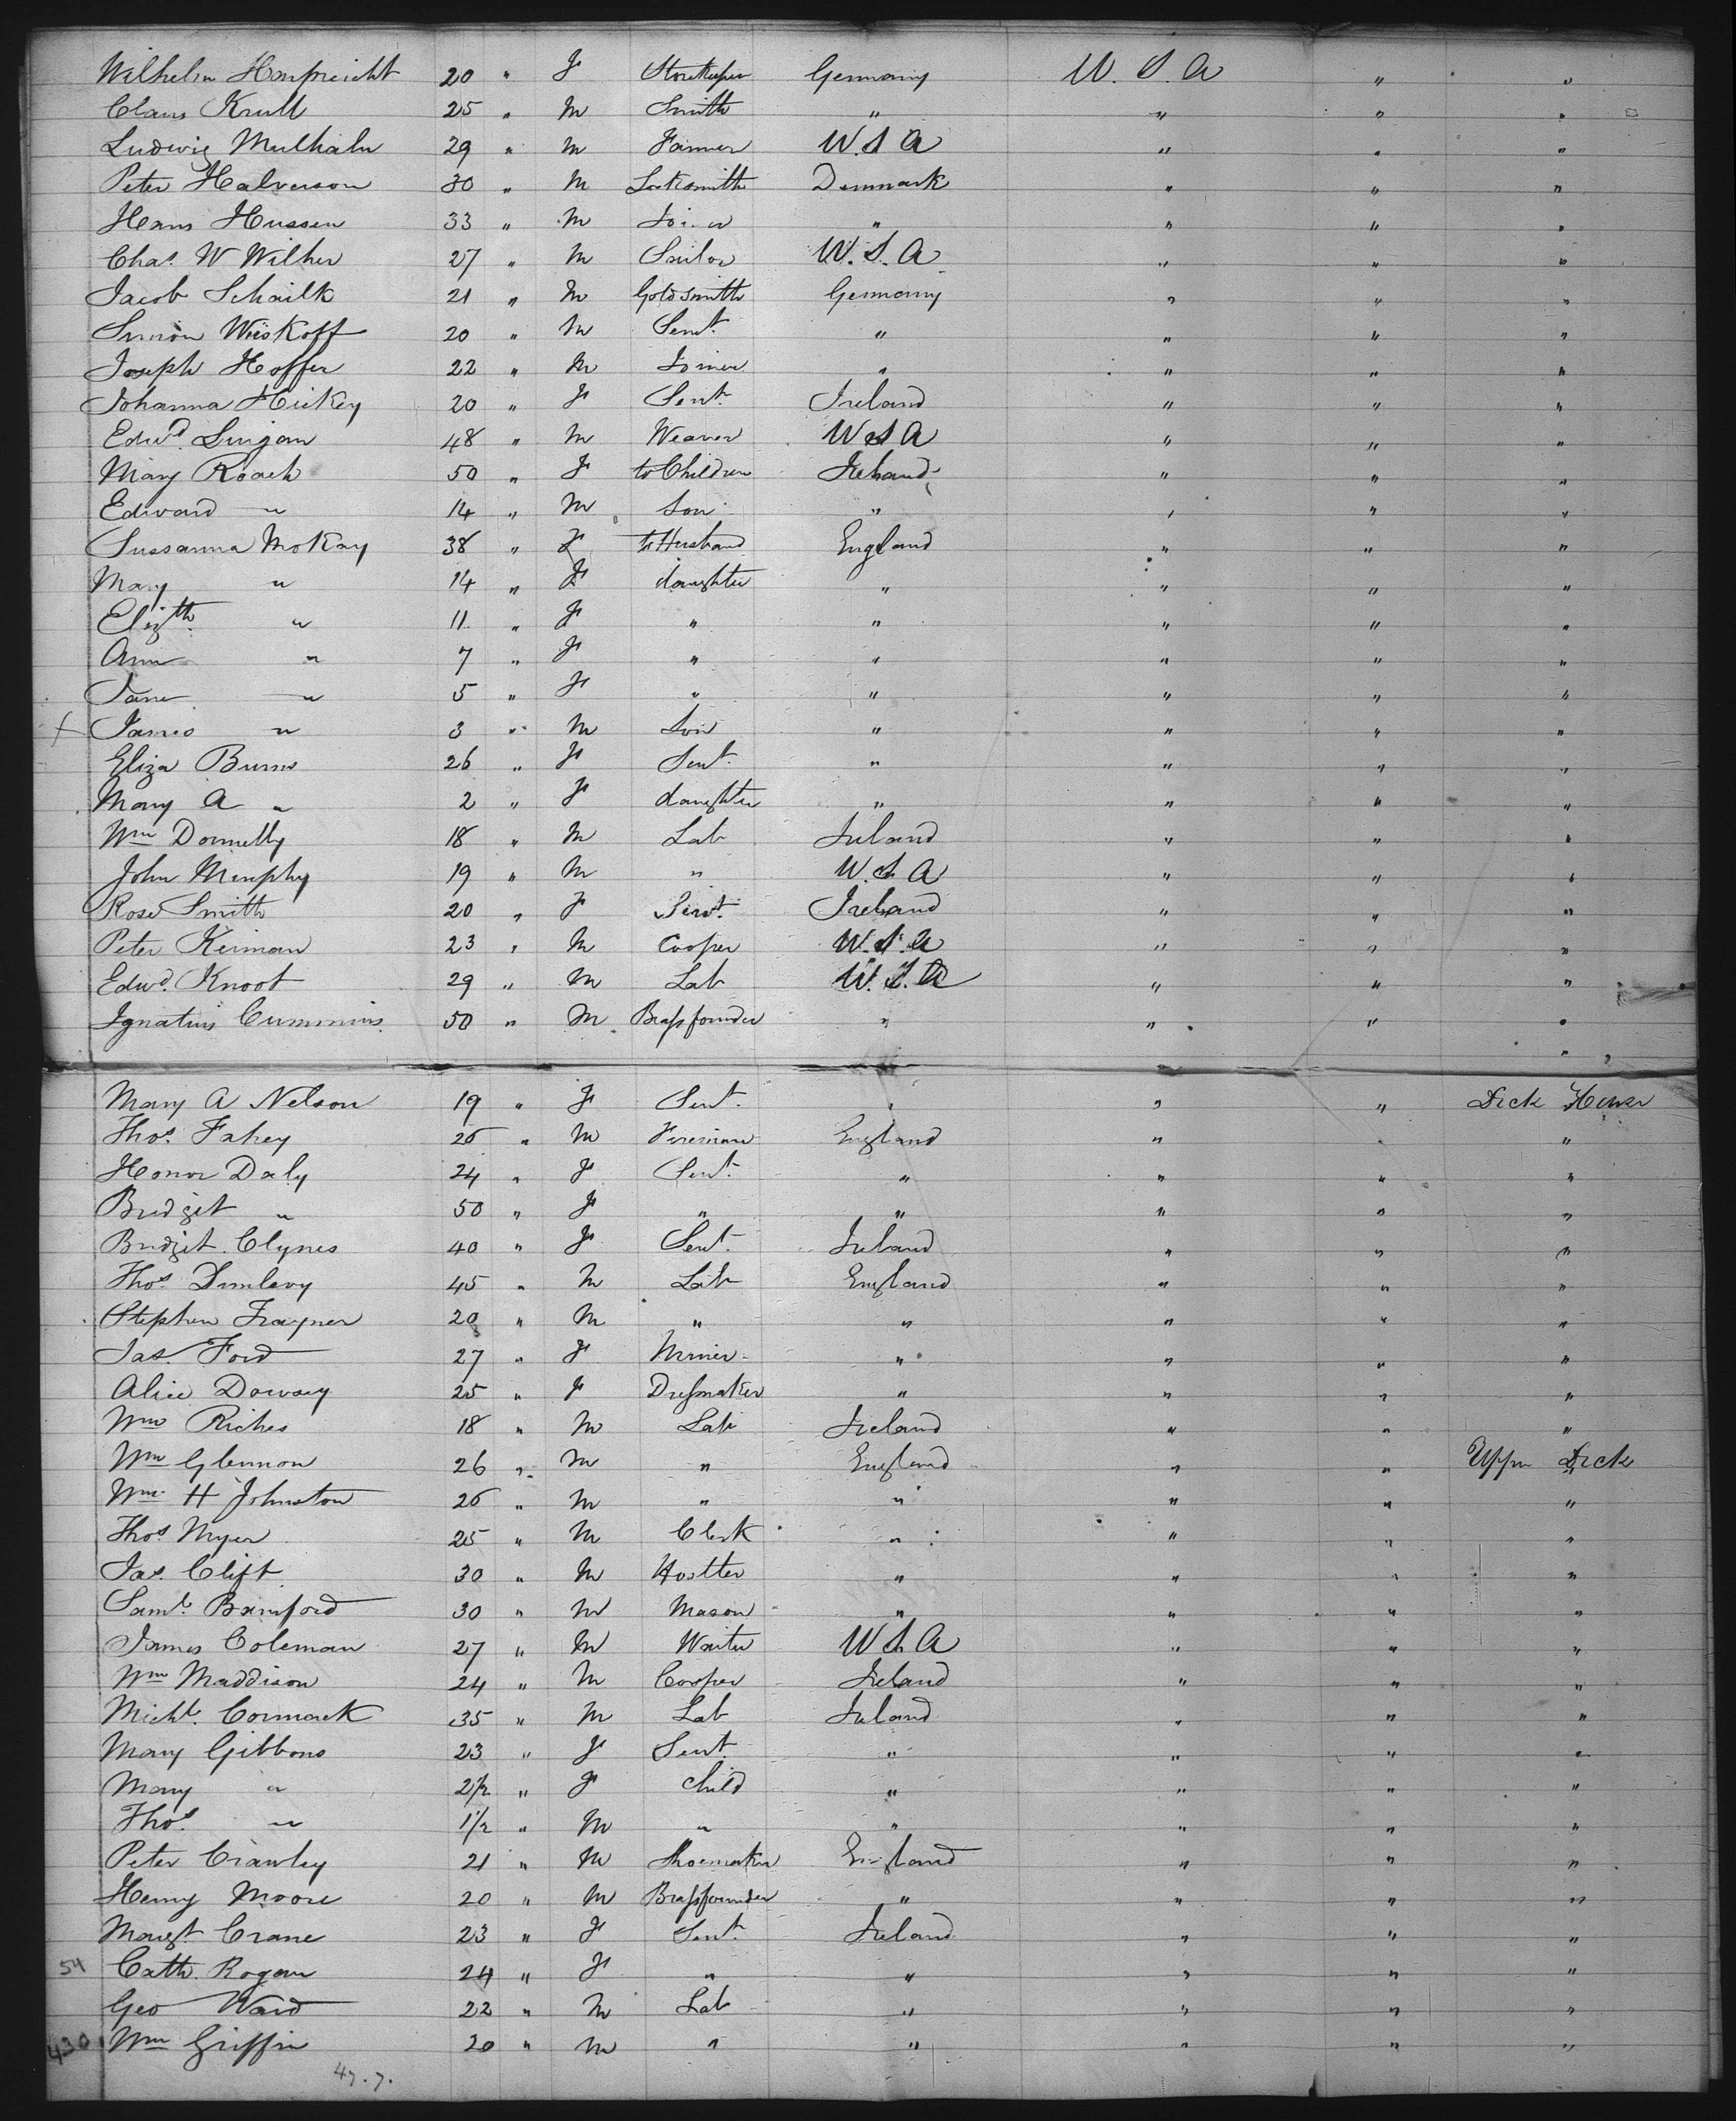 Wilhelm Hanpreicht 20 " F Storekeeper Germany U. S. A " "
Claus Krull 25 " M Smith " " " "
Ludwig Mulhaln 29 " M Farmer U. S A " " "
Peter Halverson 30 " M Locksmith Denmark " " "
Hans Hussen 33 " M Joiner " " " "
Chas. W Wilher 27 " M Sailor U. S. A " " "
Jacob Schailk 21 " M Goldsmith Germany " " "
Simon Wiiskoff 20 " M Servt. " " " "
Joseph Hoffer 22 " M Joiner " " " "
Johanna Hickey 20 " F Servt. Ireland " " "
Edwd. 48 " M Weaver U S A " " "
Mary Roach 50 " F to Children Ireland " " "
Edward " 14 " M Son " " " "
Sussanna McKay 38 " F to Husband England " " "
Mary " 14 " F daughter " " " "
Elizth. " 11 " F " " " " "
Ann " 7 " F " " " " "
Jane " 5 " F " " " " "
James " 3 " M Son " " " "
Eliza Burns 26 " F Servt. " " " "
Mary A " 2 " F daughter " " " "
Wm Donnelly 18 " M Lab Ireland " " "
John Murphy 19 " M " U. S. A " " "
Rose Smith 20 " F Servt. Ireland " " "
Peter Keirnan 23 " M Cooper U. S. A " " "
Edwd. Knoot 29 " M Lab U. S. A " " "
Ignatius Cummins 50 " M Brassfounder " " " "
Mary A Nelson 19 " F Servt. " " " Deck House
Thos. Fahey 26 " M Fireman England " " "
Honor Daly 24 " F Servt. " " " "
Bridget " 50 " F " " " " "
Bridget Clynes 40 " F Servt. Ireland " " "
Thos. Dunlevy 45 " M Lab England " " "
Stephen Traynor 20 " M " " " " "
Jas. Ford 27 " F Miner " " " "
Alice Dowsey 25 " F Dressmaker " " " "
Wm Riches 18 " M Lab Ireland " " "
Wm Glennon 26 " M " England " " Upper Deck
Wm. H Johnston 26 " M " " " " "
Thos Myer 25 " M Clerk " " " "
Jas. Clift 30 " M Hostler " " " "
Saml. Bamford 30 " M Mason " " " "
James Coleman 27 " M Waiter U S. A " " "
Wm Maddison 24 " M Cooper Ireland " " "
Michl. Cormack 35 " M Lab Ireland " " "
Mary Gibbons 23 " F Servt. " " " "
Mary " 2½ " F child " " " "
Thos. " 1½ " M " " " " "
Peter Crawley 21 " M Shoemaker England " " "
Henry Moore 20 " M Brassfounder " " " "
Margt. Crane 23 " F Servt. Ireland " " "
54 Cath. Rogan 24 " F " " " " "
Geo Ward 22 " M Lab " " " "
430 Wm Griffin 20 " M " " " " "
47.7.